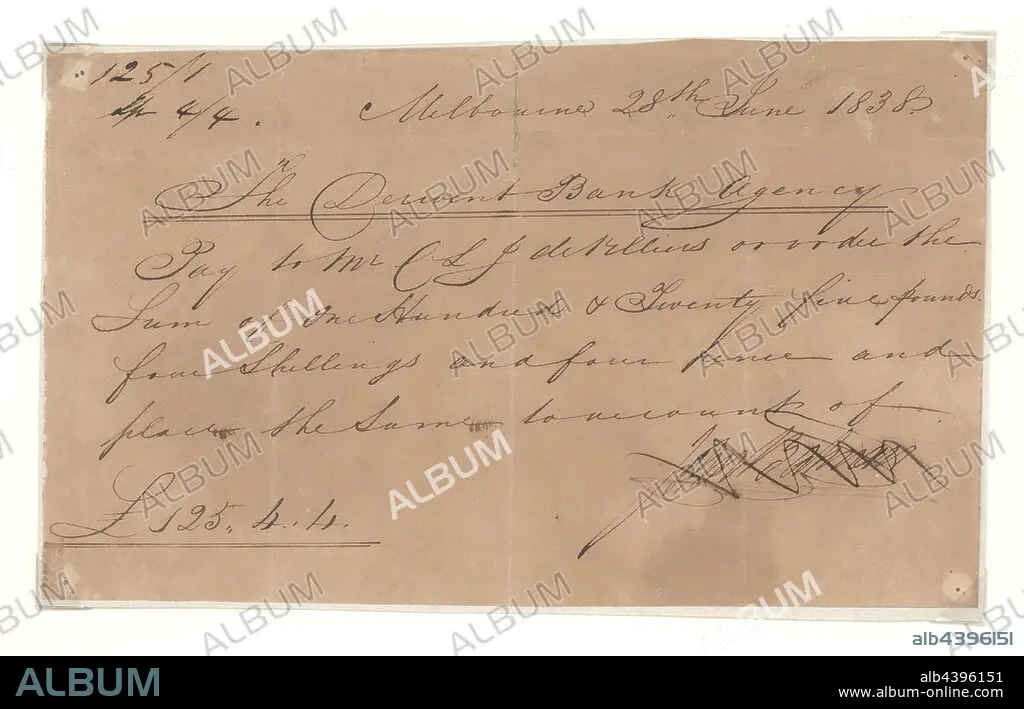 125/1
4/4.
Melbourne 28th June 1838
The Derwent Bank Agency
Pay to Mr C L J de Villiers or order the
Sum of One Hundred & Twenty five pounds
four Shillings and four pence and
place the Same to account of
£125.,4.,4.
ALBUM
alb4396151
ALBUM
alb4396151
www.album-online.com